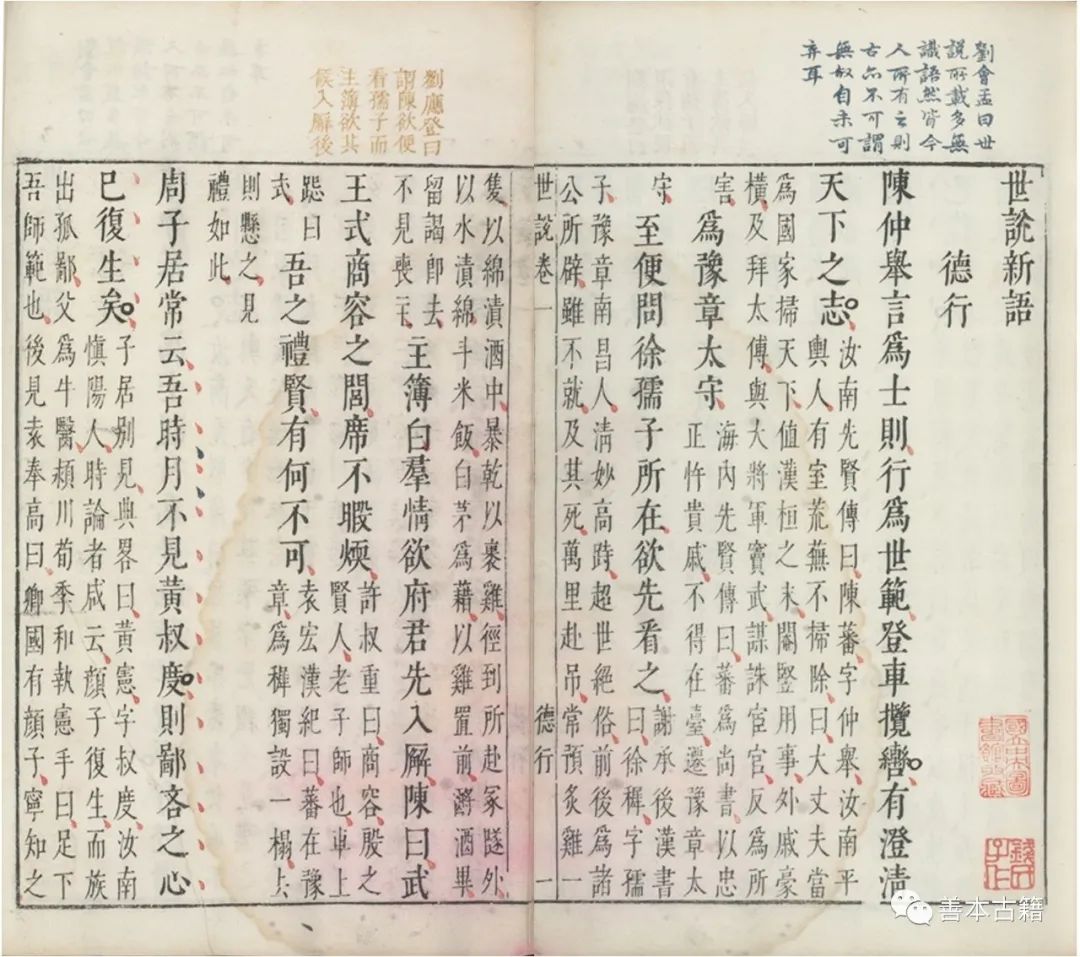 劉會孟曰世
說所載多無
識語然皆今
人所有之則
古亦不可謂
無故自未可
弃耳
世說新語
德行
陳仲舉言爲士則行爲世範登車攬轡有澄清
天下之志
汝南先賢傳曰陳蕃字仲舉汝南平
輿人有室荒蕪不掃除曰大丈夫當
爲國家掃天下值漢桓之末閹豎用事外戚豪
橫及拜太傅與大將軍竇武謀誅宦官反爲所
害
爲豫章太守
海內先賢傳曰蕃爲尚書以忠
正忤貴戚不得在臺遷豫章太
守
至便問徐孺子所在欲先看之
謝承後漢書
曰徐穉字孺
子豫章南昌人清妙高跱超世絕俗前後爲諸
公所辟雖不就及其死萬里赴吊常預炙雞一
世說卷一 德行 一
劉應登曰
謂陳欲便
看孺子而
主簿欲其
候入廨後
隻以綿漬酒中暴乾以裹雞徑到所赴冢隧外
以水漬綿斗米飯白茅爲藉以雞置前酹酒畢
留謁卽去
不見喪主
主簿白羣情欲府君先入廨陳曰武
王式商容之閭席不暇煗
許叔重曰商容殷之
賢人老子師也車上
跽曰
式
吾之禮賢有何不可
袁宏漢紀曰蕃在豫
章爲穉獨設一榻去
則懸之見
禮如此
周子居常云吾時月不見黃叔度則鄙吝之心
已復生矣
子居別見典畧曰黃憲字叔度汝南
愼陽人時論者咸云顏子復生而族
出孤鄙父爲牛醫頴川荀季和執憲手曰足下
吾師範也後見袁奉高曰卿國有顏子寧知之
國立中央圖
書館收藏
善本古籍